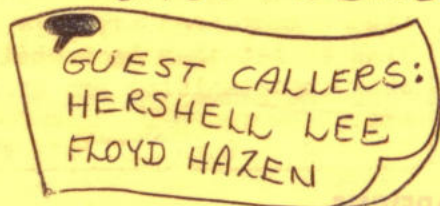 GUEST CALLERS:
HERSHELL LEE
FLOYD HAZEN